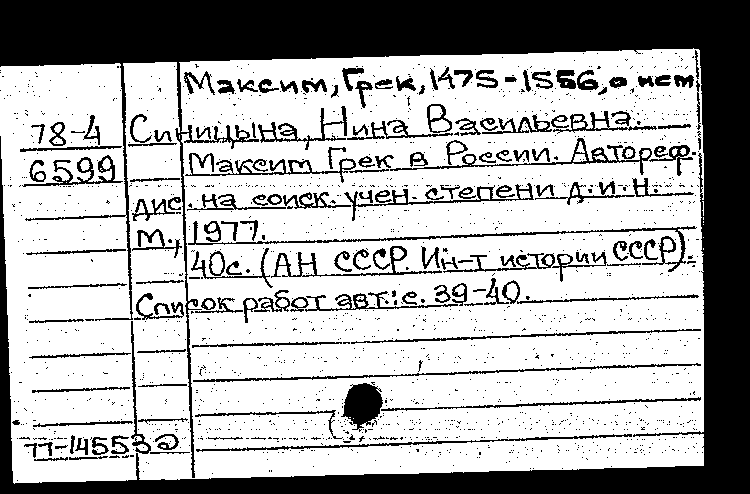 Максим, Грек, 1475-1556, о нем
78-4 Синицына, Нина Васильевна.
6599 Максим Грек в России. Автореф.
дис. на соиск. учен. степени д.и.н.
М., 1977.
40с. (АН СССР. Ин-т истории СССР).
Список работ авт.: с. 39-40.
77-14553а